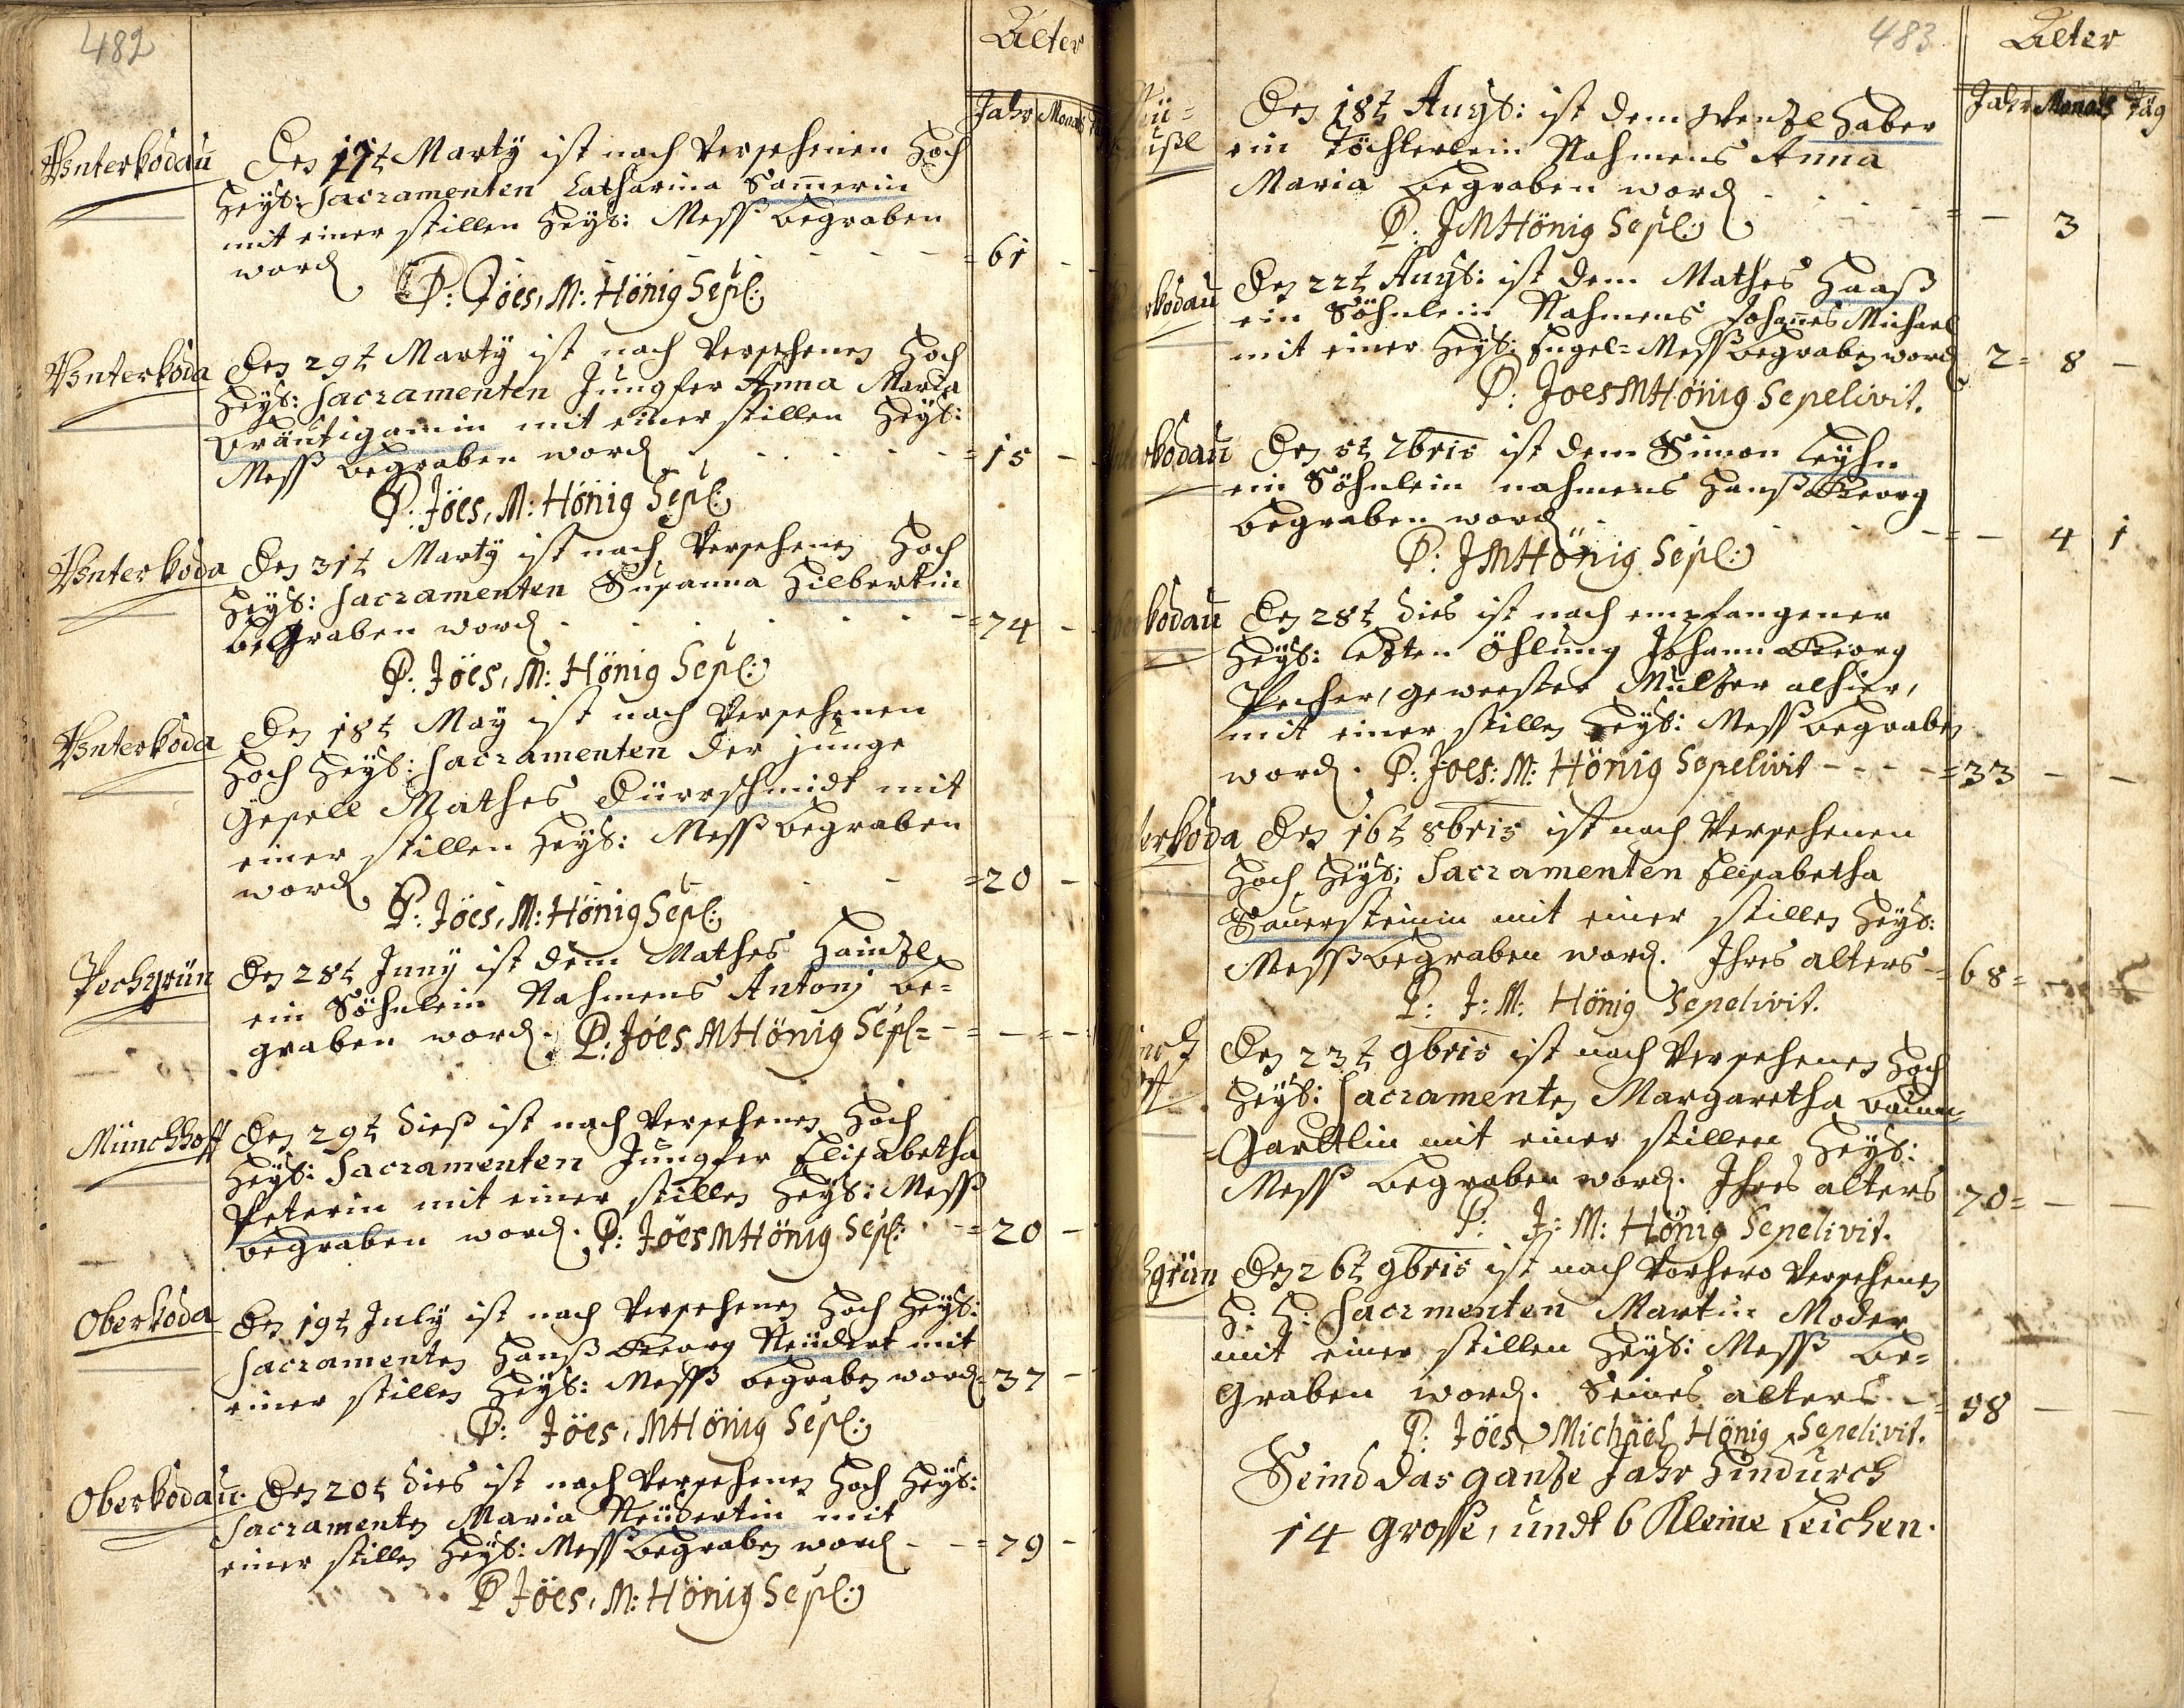 482
Alter
Jahr Monath
Vnterkodau
Den 17t Marty ist nach Versehenen Hoch
Heyl: Sacramenten Catharina Samerin
mit einer stillen Heyl: Mess begraben
word 61
P: Jöes, M: Hönig Sepl:
Vnterkoda
Den 29t Marty ist nach Versehenen Hoch
Heyl: Sacramenten Jungfer Anna Maria
Bräutigamin mit einer stillen Heyl:
Mess begraben word = 15
P: Jöes, M: Hönig Sepl:
Vnterkoda
Den 31t Marty ist nach Versehenen Hoch
Heyl: Sacramenten Susanna Hilbertin
beGraben word = 74
P: Jöes, M: Hönig Sepl:
Vnterkoda
Den 18t May ist nach Versehenen
Hoch Heyl: Sacramenten der junge
Gesell Mathes Dürrschmidt mit
einer stillen Heyl: Mess begraben
word = 20
P: Jöes, M: Hönig Sepl:
Pechgrün
Den 28t Juny ist dem Mathes Hainzl
ein Söhnlein Nahmens Antonj be=
graben word. P: Jöes MHönig Sepl=
Münchhoff
Den 29t dies ist nach Versehenen Hoch
Heyl: Sacramenten Jungfer Elisabetha
Peterin mit einer stillen Heyl: Mess
begraben word. P: Jöes MHönig Sepl: = 20
Oberkoda
Den 19t July ist nach Versehenen Hoch Heyl:
Sacramenten Hanß Georg Neudert mit
einer stillen Heyl: Mess begraben word = 37
P: Jöes, MHönig Sepl:
Oberkodau.
Den 20t dies ist nach Versehenen Hoch Heyl:
Sacramenten Maria Neudertin mit
einer stillen Heyl: Mess begraben word - - = 79
P Jöes, M: Hönig Sepl:
483
Alter
Jahr Monath Täg
Den 18t Augs: ist dem Wenzl Haber
ein Töchterlein Nahmens Anna
Maria begraben word
P: JMHönig Sepl: 3
kodau
Den 22t Augs: ist dem Mathes Haaß
ein Söhnlein Nahmens Johannes Michael
mit einer Heyl: Engel=Mess begraben word 2= 8 -
P: Joes MHönig Sepelivit.
kodau
Den 5t 7bris ist dem Simon Leyhn
ein Söhnlein nahmens Hanß Georg
begraben word = - 4 1
P: JMHönig Sepl:
kodau
Den 28t dies ist nach empfangener
Heyl: letzten Öhlung Johann Georg
Pecher, gewester Mültzer alhier,
mit einer stillen Heyl: Mess begraben
word. P: Joes: M: Hönig Sepelivit - - - = 33 - -
terkoda
Den 16t 8bris ist nach Versehenen
Hoch Heyl: Sacramenten Elisabetha
Sauersteinin mit einer stillen Heyl:
Mess begraben word. Ihres alters = 68 =
P: J: M: Hönig Sepelivit.
Den 23t 9bris ist nach Versehenen Hoch
Heyl: Sacramenten Margaretha Baum
=Gartlin mit einer stillen Heyl:
Mess begraben word. Ihres alters 70 = - -
P: J: M: Hönig Sepelivit.
grün
Den 26t 9bris ist nach vorhero Versehenen
H: H: Sacrmenten Martin Moder
mit einer stillen Heyl: Mess be=
Graben word. Seines alters = 58 - -
P: Jöes Michael Hönig Sepelivit.
Seind das gantze Jahr Hindurch
14 grosse, undt 6 Kleine Leichen.